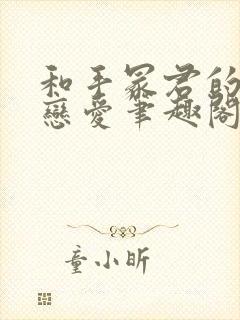 和手冢君的
戀愛筆趣閣
童小昕